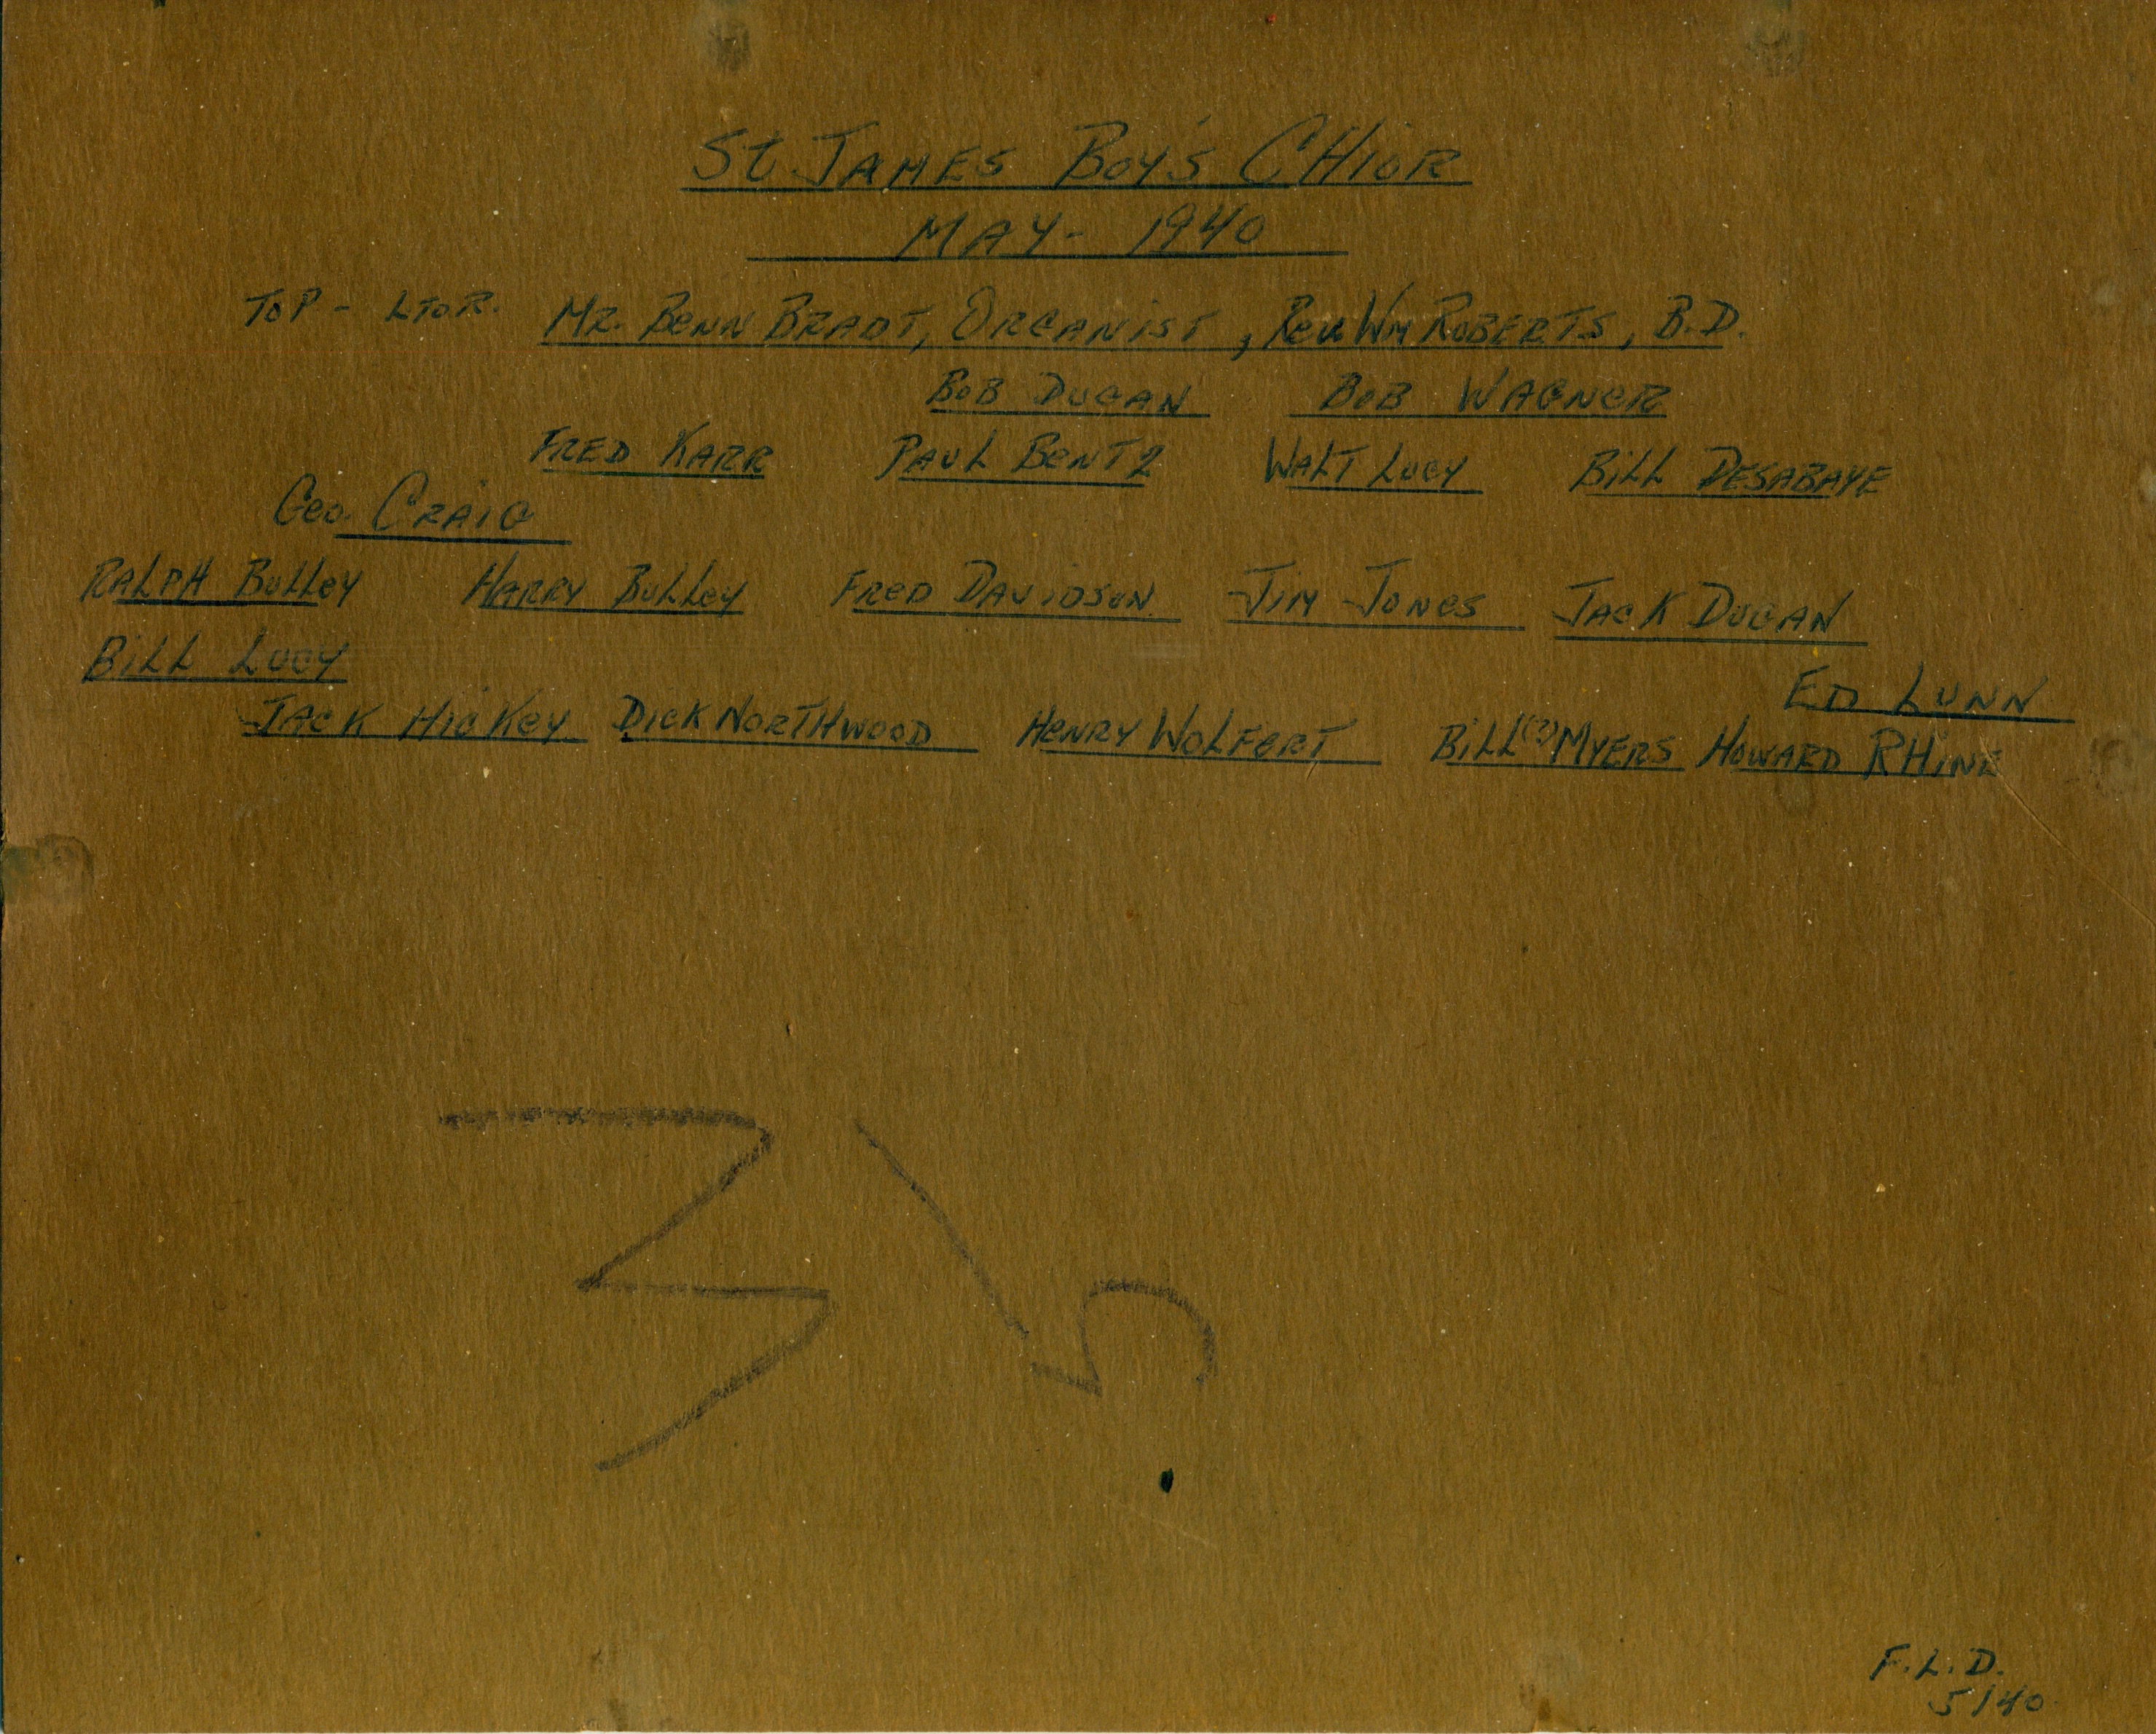 St JAMES BOY'S CHIOR
MAY - 1940
TOP - L TO R. MR. BENN BRADT, ORGANIST, REV WM ROBERTS, B.D.
BOB DUGAN BOB WAGNER
FRED KARR PAUL BENTZ WALT LUCY BILL DESABAYE
GEO. CRAIG
RALPH BULLEY HARRY BULLEY FRED DAVIDSON JIM JONES JACK DUGAN
BILL LUCY
ED LUNN
JACK HICKEY DICK NORTHWOOD HENRY WOLFERT BILL (?) MYERS HOWARD RHINE
F.L.D.
5/40